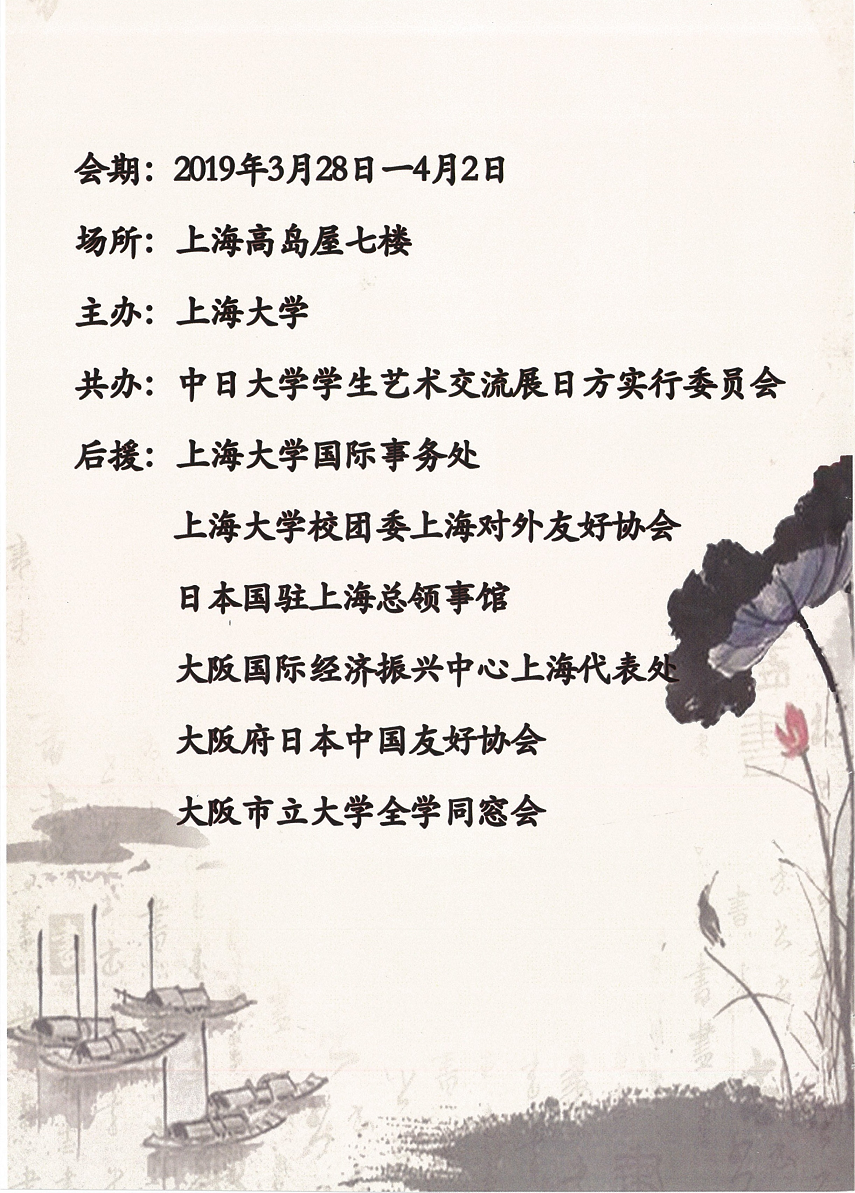 会期：2019年3月28日—4月2日
场所：上海高岛屋七楼
主办：上海大学
共办：中日大学学生艺术交流展日方实行委员会
后援：上海大学国际事务处
上海大学校团委上海对外友好协会
日本国驻上海总领事馆
大阪国际经济振兴中心上海代表处
大阪府日本中国友好协会
大阪市立大学全学同窓会